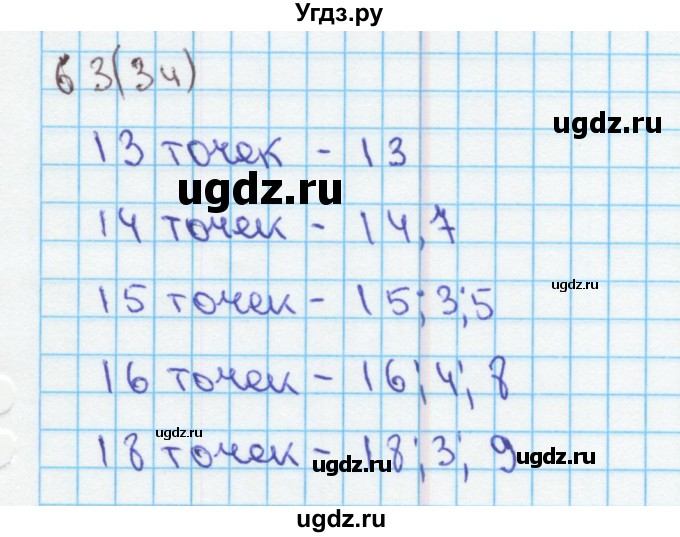 Угдз.ру
63(3ч)
13 точек - 13
ugdz.ru
ugdz.ru
14 точек - 14,7
15 точек - 15; 3; 5
ugdz.ru
16 точек - 16; 4; 8
ugdz.ru
18 точек - 18; 3; 9
ugdz.ru
ugdz.ru
ugdz.ru